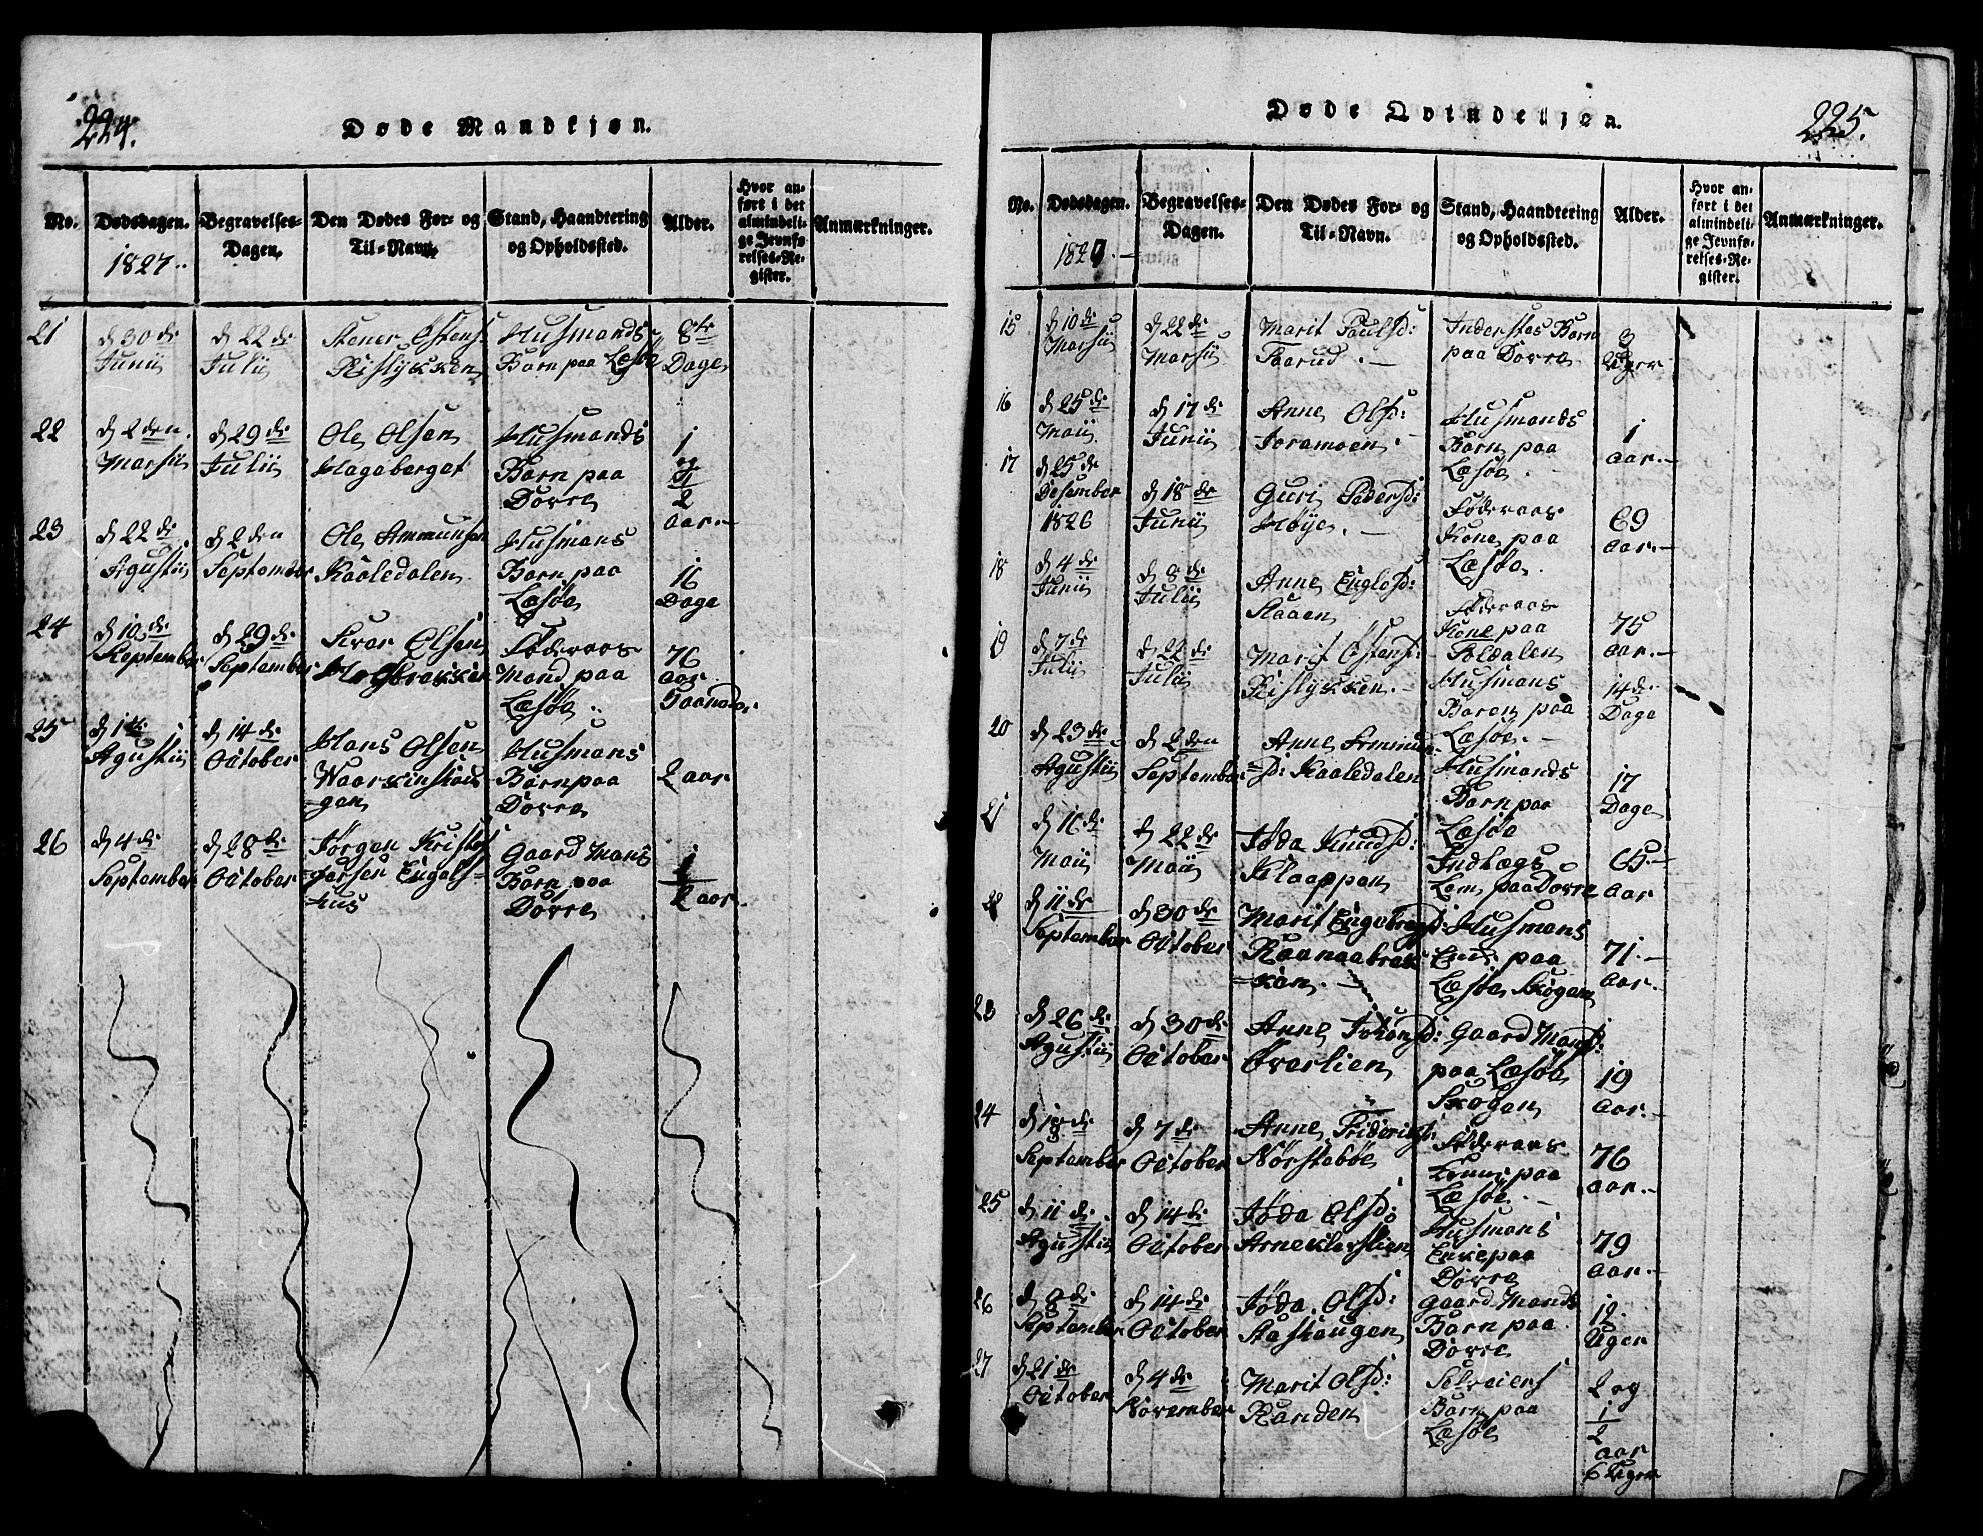 224.
Døde Mandkjøn.
No.
Dødsdagen.
1827.
Begravelses-
Dagen.
Den Dødes For- og
Til-Navn.
Stand, Haandtering
og Opholdssted.
Alder.
Hvor an-
ført i det
almindeli-
ge Jevnfø-
relses-Re-
gister.
Anmærkninger.
21
d 30 de
Junii
d 22 de
Julii
Stener Østens
Rislykken
Husmands
Barn paa Læsøe
8te
Dage
22
d 2den
Marsii
d 29 de
Julii
Ole Olsen
Hagaberget
Husmands
Barn paa
Dovre
1
og
1/2
aar.
23
d 22 de
Agustii
d 2den
September
Ole Ammunsen
Kaaledalen
Husmans
Barn paa
Læsøe
16
Dage
24
d 10 de
September
d 29 de
September
Ivar Olsen
Høgbrækken
Føderaas
Mand paa
Læsøe
76
aar
25
d 1te
Agustii
d 14 de
October
Hans Olsen
Husmans
Barn paa
Dovre
2 aar
26
d 4 de
September
d 28 de
October
Jørgen Kristof
fersen Engels-
hus
Gaard Mans
Barn paa
Dovre
1/2 aar.
225.
Døde Qvindekjøn.
No.
Dødsdagen.
1827.
Begravelses-
Dagen.
Den Dødes For- og
Til-Navn.
Stand, Haandtering
og Opholdssted.
Alder.
Hvor an-
ført i det
almindeli-
ge Jevnfø-
relses-Re-
gister.
Anmærkninger.
15
d 10 de
Marsii
d 22 de
Marsii
Marit Paulsd:
Faarud
Inderstes Barn
paa Dovre
3
Uger
16
d 25 de
Maii
d 17 de
Junii
Anne Olsd:
Joramoen
Husmands
Barn paa
Læsøe
1
aar.
17
d 25 de
Desember
1826
d 18 de
Junii
Guri Pedersd:
Høye
Føderaas
Kone paa
Læsøe
69
aar.
18
d 4 de
Junii
d 8 de
Julii
Anne
Føderaas
Kone paa
75
aar.
19
d 7 de
Julii
d 22 de
Julii
Marit Østensd:
Rislykken
Husmans
Baren paa
Læsøe
14 de
Dage
20
d 23 de
Agustii
d 2den
September
Anne Ammun-
sd: Kaaledalen
Husmands
Barn paa
Læsøe
17
Dage
21
d 16 de
Maii
d 22 de
Maii
Jøda Knudsd:
Klaappen
Indlægs
Lem paa Dovre
65
aar
22
d 11 de
September
d 30 de
October
Marit Engebregsd:
Raanaabrek
ken
Husmans
Enke paa
Læsøe Skogen
71
aar.
23
d 26 de
Agustii
d 30 de
October
Anne Johansd:
Øverlien
Gaard Mandsd:
paa Læsøe
Skogen
19
aar.
24
d 18 de
September
d 7 de
October
Anne Friderigsd:
Nørstebøe
Føderaas
Kone paa
Læsøe
76
aar.
25
d 11 de
Agustii
d 14 de
October
Jøda Olsd:
Arneklevslien
Husmans
Enke paa
Dovre
79
aar.
26
d 8 de
September
d 14 de
October
Jøda Olsd:
Stashaugen
Gaard Mands
Barn paa
Dovre
12
Uger
27
d 21 de
October
d 4 de
November
Marit Olsd:
Randen
Selveiers
Barn paa
Læsøe
2 og
1/2
aar
6 Uger